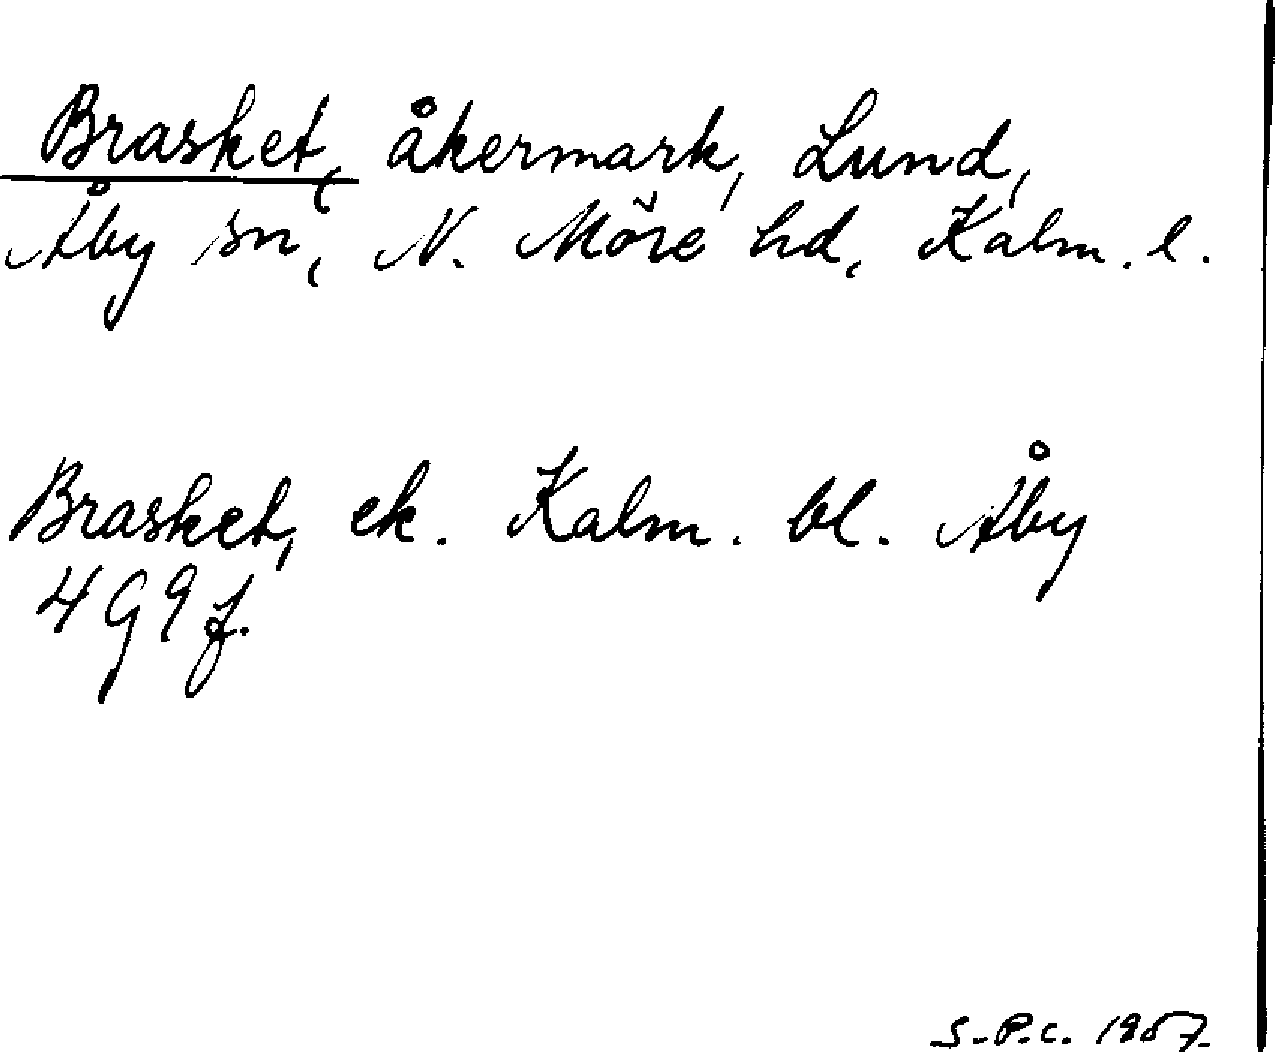 Brasket, åkermark, Lund,
Åby sn, N. Möre hd, Kalm. l.
Brasket, ek. Kalm. bl. Åby
4 G 9 f.
S-P.C. 1957.